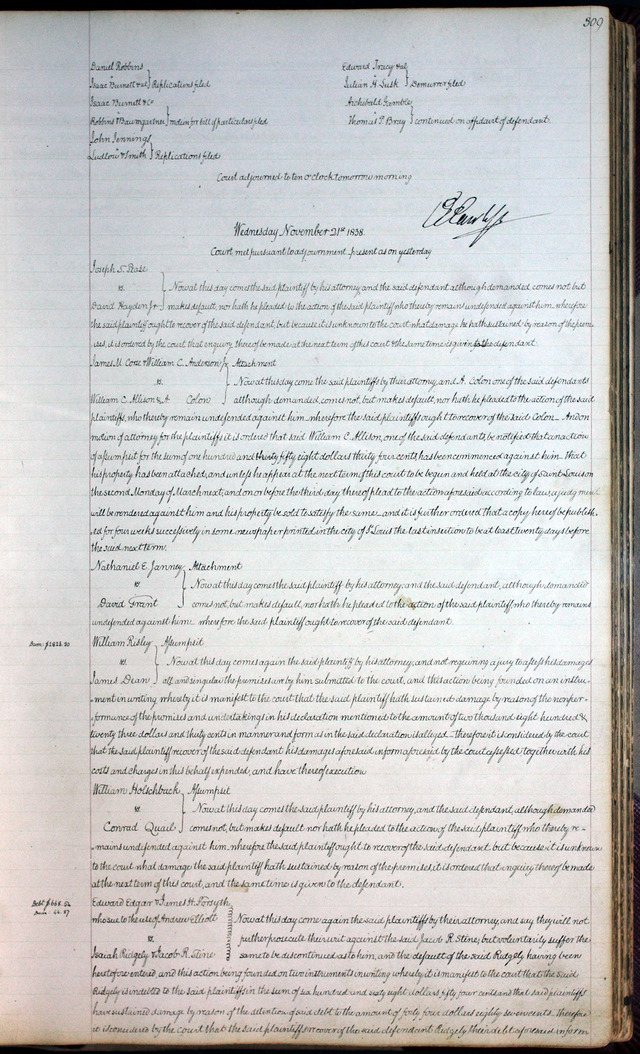 309
Daniel Robbins
vs
Isaac Burnett & al } Replications filed
Isaac Burnett & Co
vs
Robbins & Baumgartner } motion for bill of particulars filed
John Jennings
vs
Ludlow & Smith } Replications filed
Edward Tracy & al
vs
Julian H Lusk } Demurrer filed
Archibald Gamble
vs
Thomas P Bray } continued on affidavit of defendant.
Court adjourned to ten o'clock tomorrow morning
Wednesday November 21st 1838.
Court met pursuant to adjournment present as on yesterday
Joseph S. Pease
vs. Now at this day comes the said plaintiff by his attorney, and the said defendant although demanded comes not but
David Hayden Jr makes default, nor hath he pleaded to the action of the said plaintiff who thereby remains undefended against him, wherefore
the said plaintiff ought to recover of the said defendant, but because it is unknown to the court what damage he hath sustained by reason of the prem-
ises, it is ordered by the court that enquiry thereof be made at the next term of this court & the same time is given to the defendant.
James M. & William C. Anderson } Attachment
vs. Now at this day come the said plaintiffs by their attorney, and A. Colon one of the said defendants
William C. Allison & A Colon although demanded comes not, but makes default, nor hath he pleaded to the action of the said
plaintiffs, who thereby remain undefended against him wherefore the said plaintiffs ought to recover of the said Colon And on
motion of attorney for the plaintiffs it is ordered that said William C. Allison, one of the said defendants, be notified that an action
of assumpsit for the sum of one hundred and thirty fifty eight dollars thirty four cents, has been commenced against him That
his property has been attached, and unless he appear at the next term of this court to be begun and held at the city of Saint Louis on
the second Monday of March next, and on or before the third day thereof plead to the action aforesaid according to law, a judgment
will be rendered against him and his property be sold to satisfy the same and it is further ordered that a copy hereof be publish
ed for four weeks successively in some newspaper printed in the city of St Louis the last insertion to be at least twenty days before
the said next term.
Nathaniel E. Janney } Attachment
vs. Now at this day comes the said plaintiff by his attorney, and the said defendant, although demanded
David Grant comes not, but makes default, nor hath he pleaded to the action of the said plaintiff who thereby remains
undefended against him wherefore the said plaintiff ought to recover of the said defendant.
Dam: $2823.30
William Risley } Assumpsit
vs. Now at this day comes again the said plaintiff by his attorney, and not requiring a jury to assess his damages
James Dean all and singular the premises are by him submitted to the court, and this action being founded on an instru-
ment in writing whereby it is manifest to the court that the said plaintiff hath sustained damage by reason of the nonper-
formance of the promises and undertakings in his declaration mentioned to the amount of two thousand eight hundred &
twenty three dollars and thirty cents in manner and form as in the said declaration is alleged therefore it is considered by the court
that the said plaintiff recover of the said defendant his damages aforesaid in form aforesaid by the court assessed together with his
costs and charges in this behalf expended, and have thereof execution
William Holschback } Assumpsit
vs. Now at this day comes the said plaintiff by his attorney, and the said defendant, although demanded
Conrad Quail comes not, but makes default nor hath he pleaded to the action of the said plaintiff who thereby re-
mains undefended against him. wherefore the said plaintiff ought to recover of the said defendant. but because it is unknown
to the court what damage the said plaintiff hath sustained by reason of the premises, it is ordered that enquiry thereof be made
at the next term of this court, and the same time is given to the defendant.
Debt $668.54
Dam: 44.87
Edward Edgar & James H. Forsyth
who sue to the use of Andrew Elliott Now at this day come again the said plaintiffs by their attorney, and say they will not
vs. further prosecute their writ against the said Jacob R. Stine, but voluntarily suffer the
Isaiah Ridgely & Jacob R. Stine same to be discontinued as to him, and the default of the said Ridgely having been
heretofore entered, and this action being founded on two instruments in writing whereby it is manifest to the court that the said
Ridgely is indebted to the said plaintiffs in the sum of six hundred and sixty eight dollars fifty four cents and that said plaintiffs
have sustained damage by reason of the detention of said debt to the amount of forty four dollars eighty seven cents. Therefore
it is considered by the court that the said plaintiffs recover of the said defendant Ridgely their debt aforesaid in form